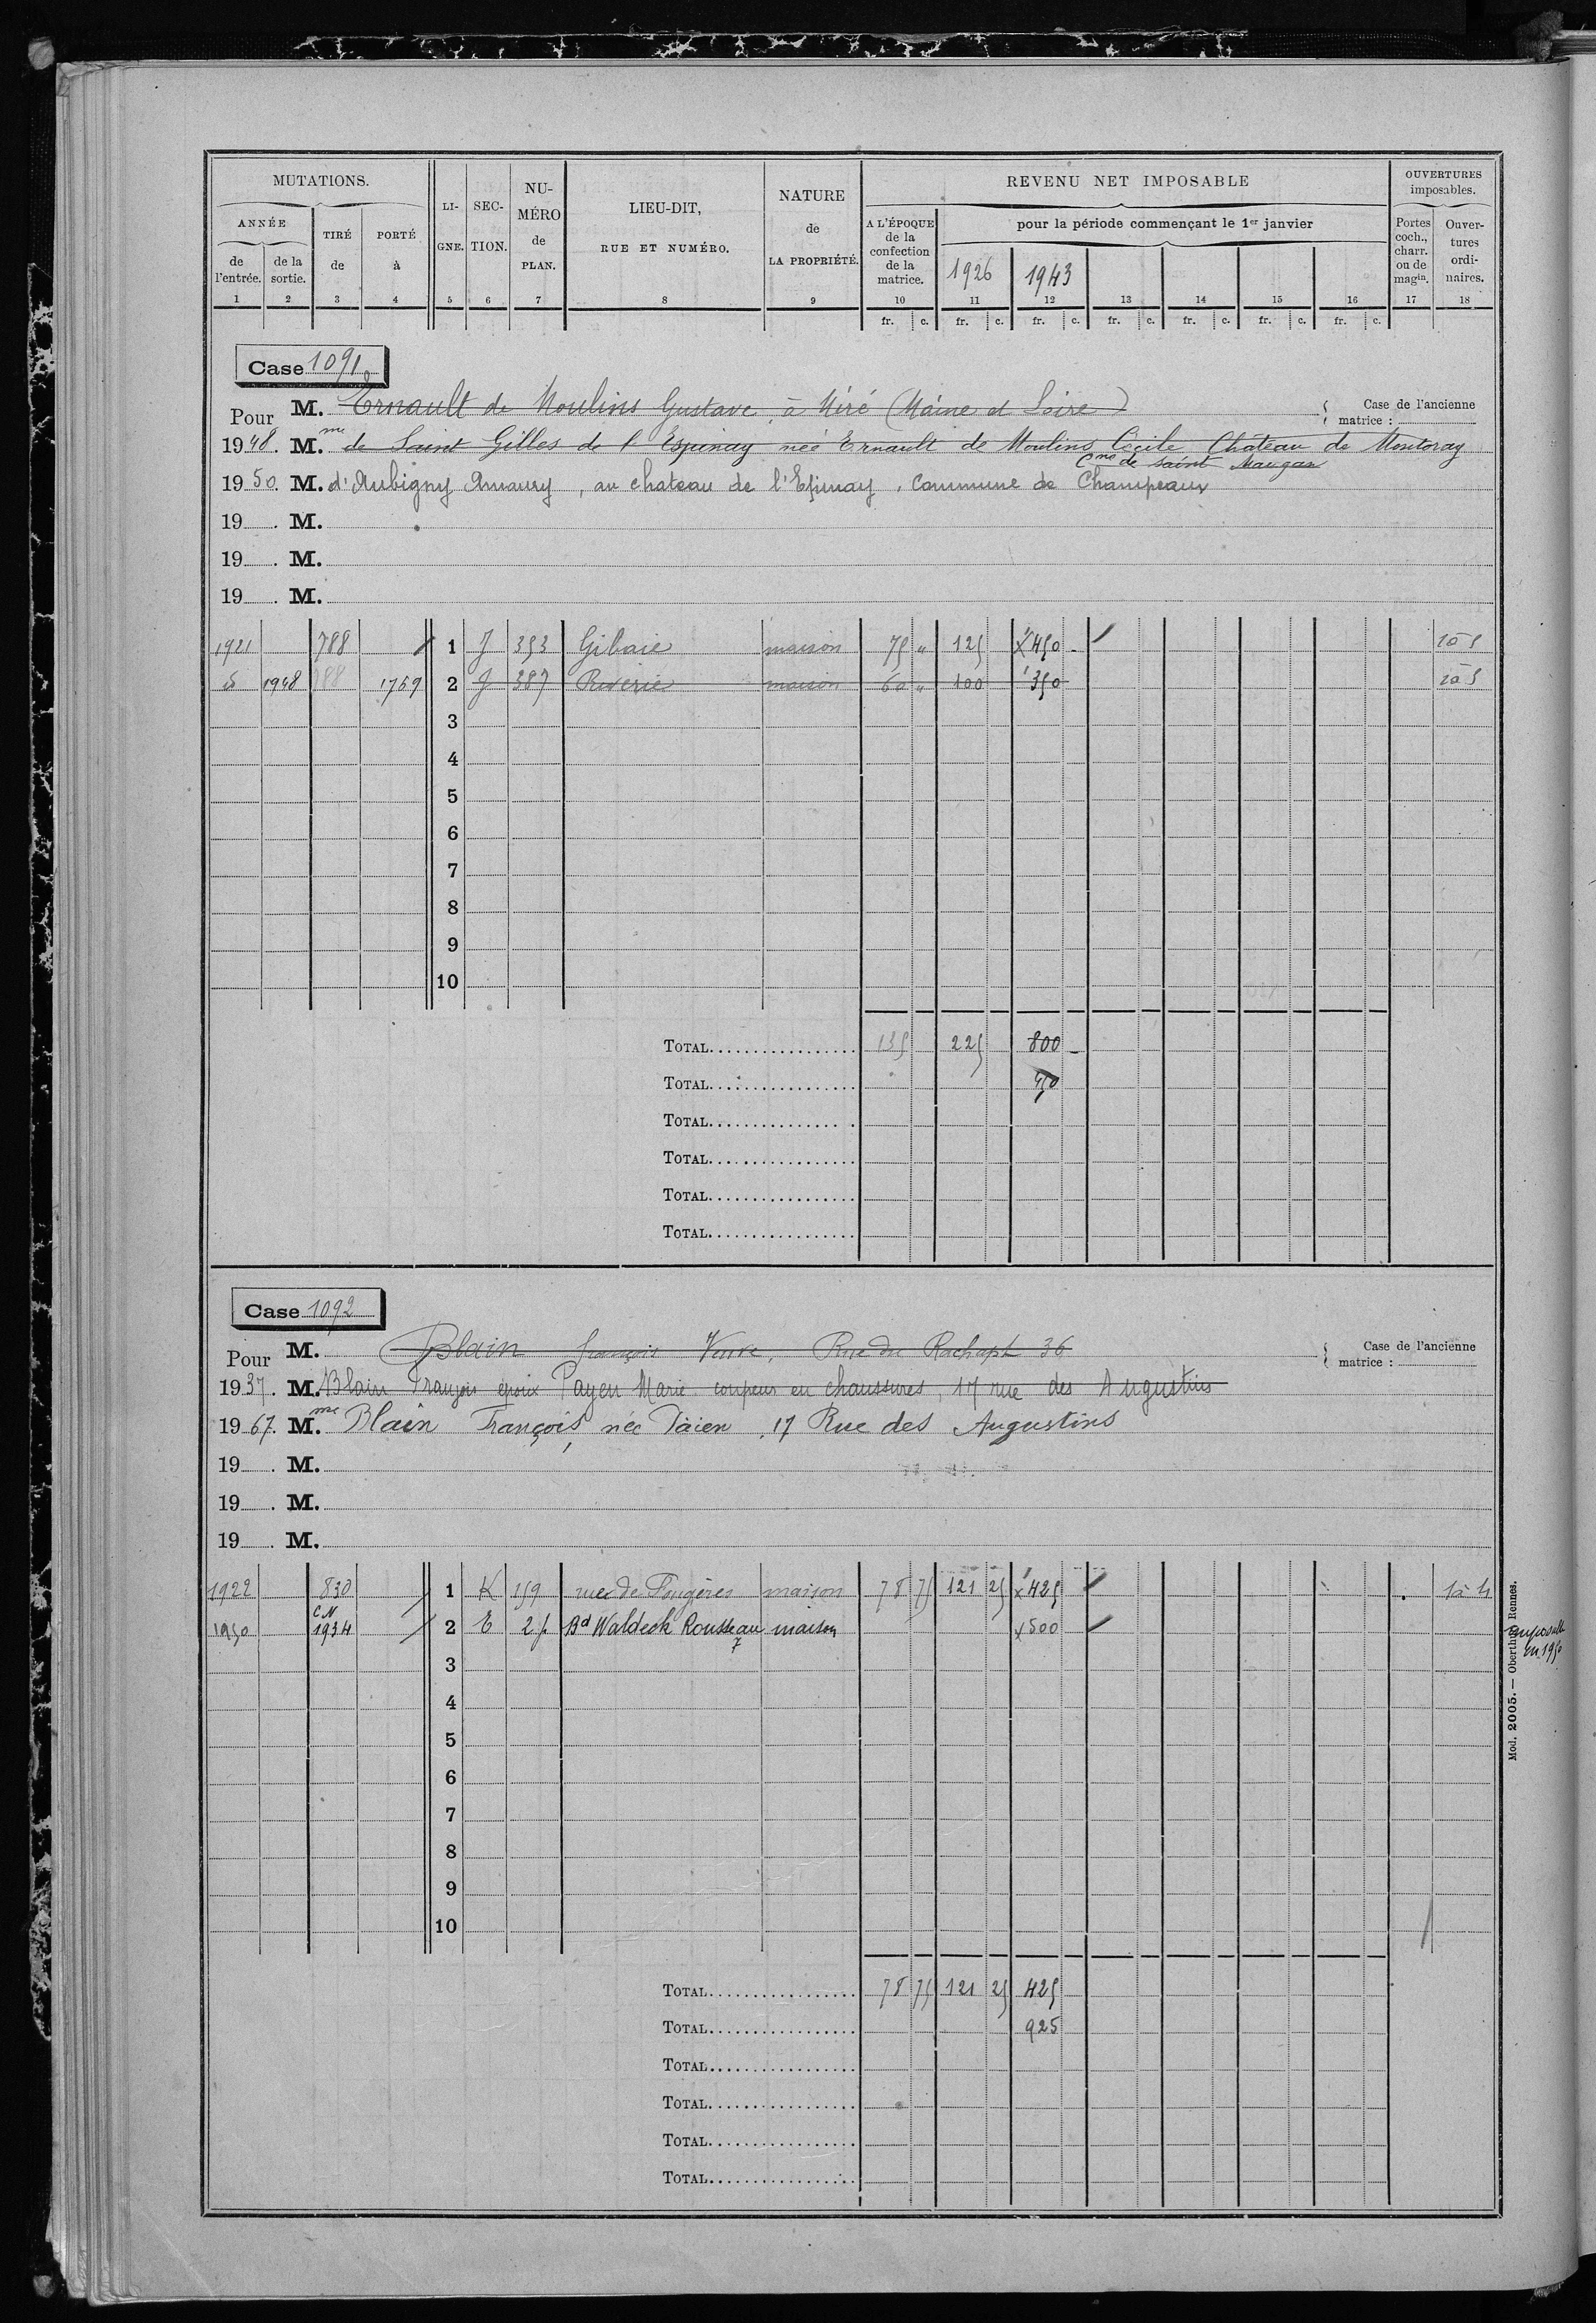 MUTATIONS.
ANNÉE
de l'entrée. de la sortie. TIRÉ de PORTÉ à
LI-GNE. SEC-TION. NU-MÉRO de PLAN. LIEU-DIT, RUE ET NUMÉRO. NATURE de LA PROPRIÉTÉ.
REVENU NET IMPOSABLE
A L'ÉPOQUE de la confection de la matrice. pour la période commençant le 1er janvier
1926 1943
OUVERTURES imposables.
Portes coch., charr. ou de magin. Ouver-tures ordi-naires.
1 2 3 4 5 6 7 8 9 10 11 12 13 14 15 16 17 18
fr. c. fr. c. fr. c. fr. c. fr. c. fr. c. fr. c.
Case 1091
Pour M. Ernault de Moulins Gustave à Miré (Maine et Loire) Case de l'ancienne matrice :
1948. Mme de Saint Gilles de l'Espinay née Ernault de Moulins Cécile Chateau de Montoray
Cne de saint Maugan
1950. M. d'Aubigny Amaury, au chateau de l'Epinay, commune de Champeaux
19 . M.
19 . M.
19 . M.
1921 788 1 J 353 Gibaie maison 75 " 125 450 - 1 à 5
d 1948 788 1769 2 J 387 maison 60 " 100 350 2 à 5
3
4
5
6
7
8
9
10
TOTAL 135 225 800 -
TOTAL 450
TOTAL
TOTAL
TOTAL
TOTAL
Case 1092
Pour M. Blain François Veuve, Rue du Rachapt 36 Case de l'ancienne matrice :
1937. M. Blain François époux Payen Marie coupeur en chaussures, 17 rue des Augustins
1967. Mme Blain François, née Païen, 17 Rue des Augustins
19 . M.
19 . M.
19 . M.
1922 830 1 K 159 rue de Fougères maison 78 75 121 25 x 425 1 à 4
1950 CN 1934 2 E 2 Bd Waldeck Rousseau 7 maison x 500 imposable en 1950
3
4
5
6
7
8
9
10
TOTAL 78 75 121 25 425
TOTAL 925
TOTAL
TOTAL
TOTAL
TOTAL
Mod. 2005. — Oberthür, Rennes.